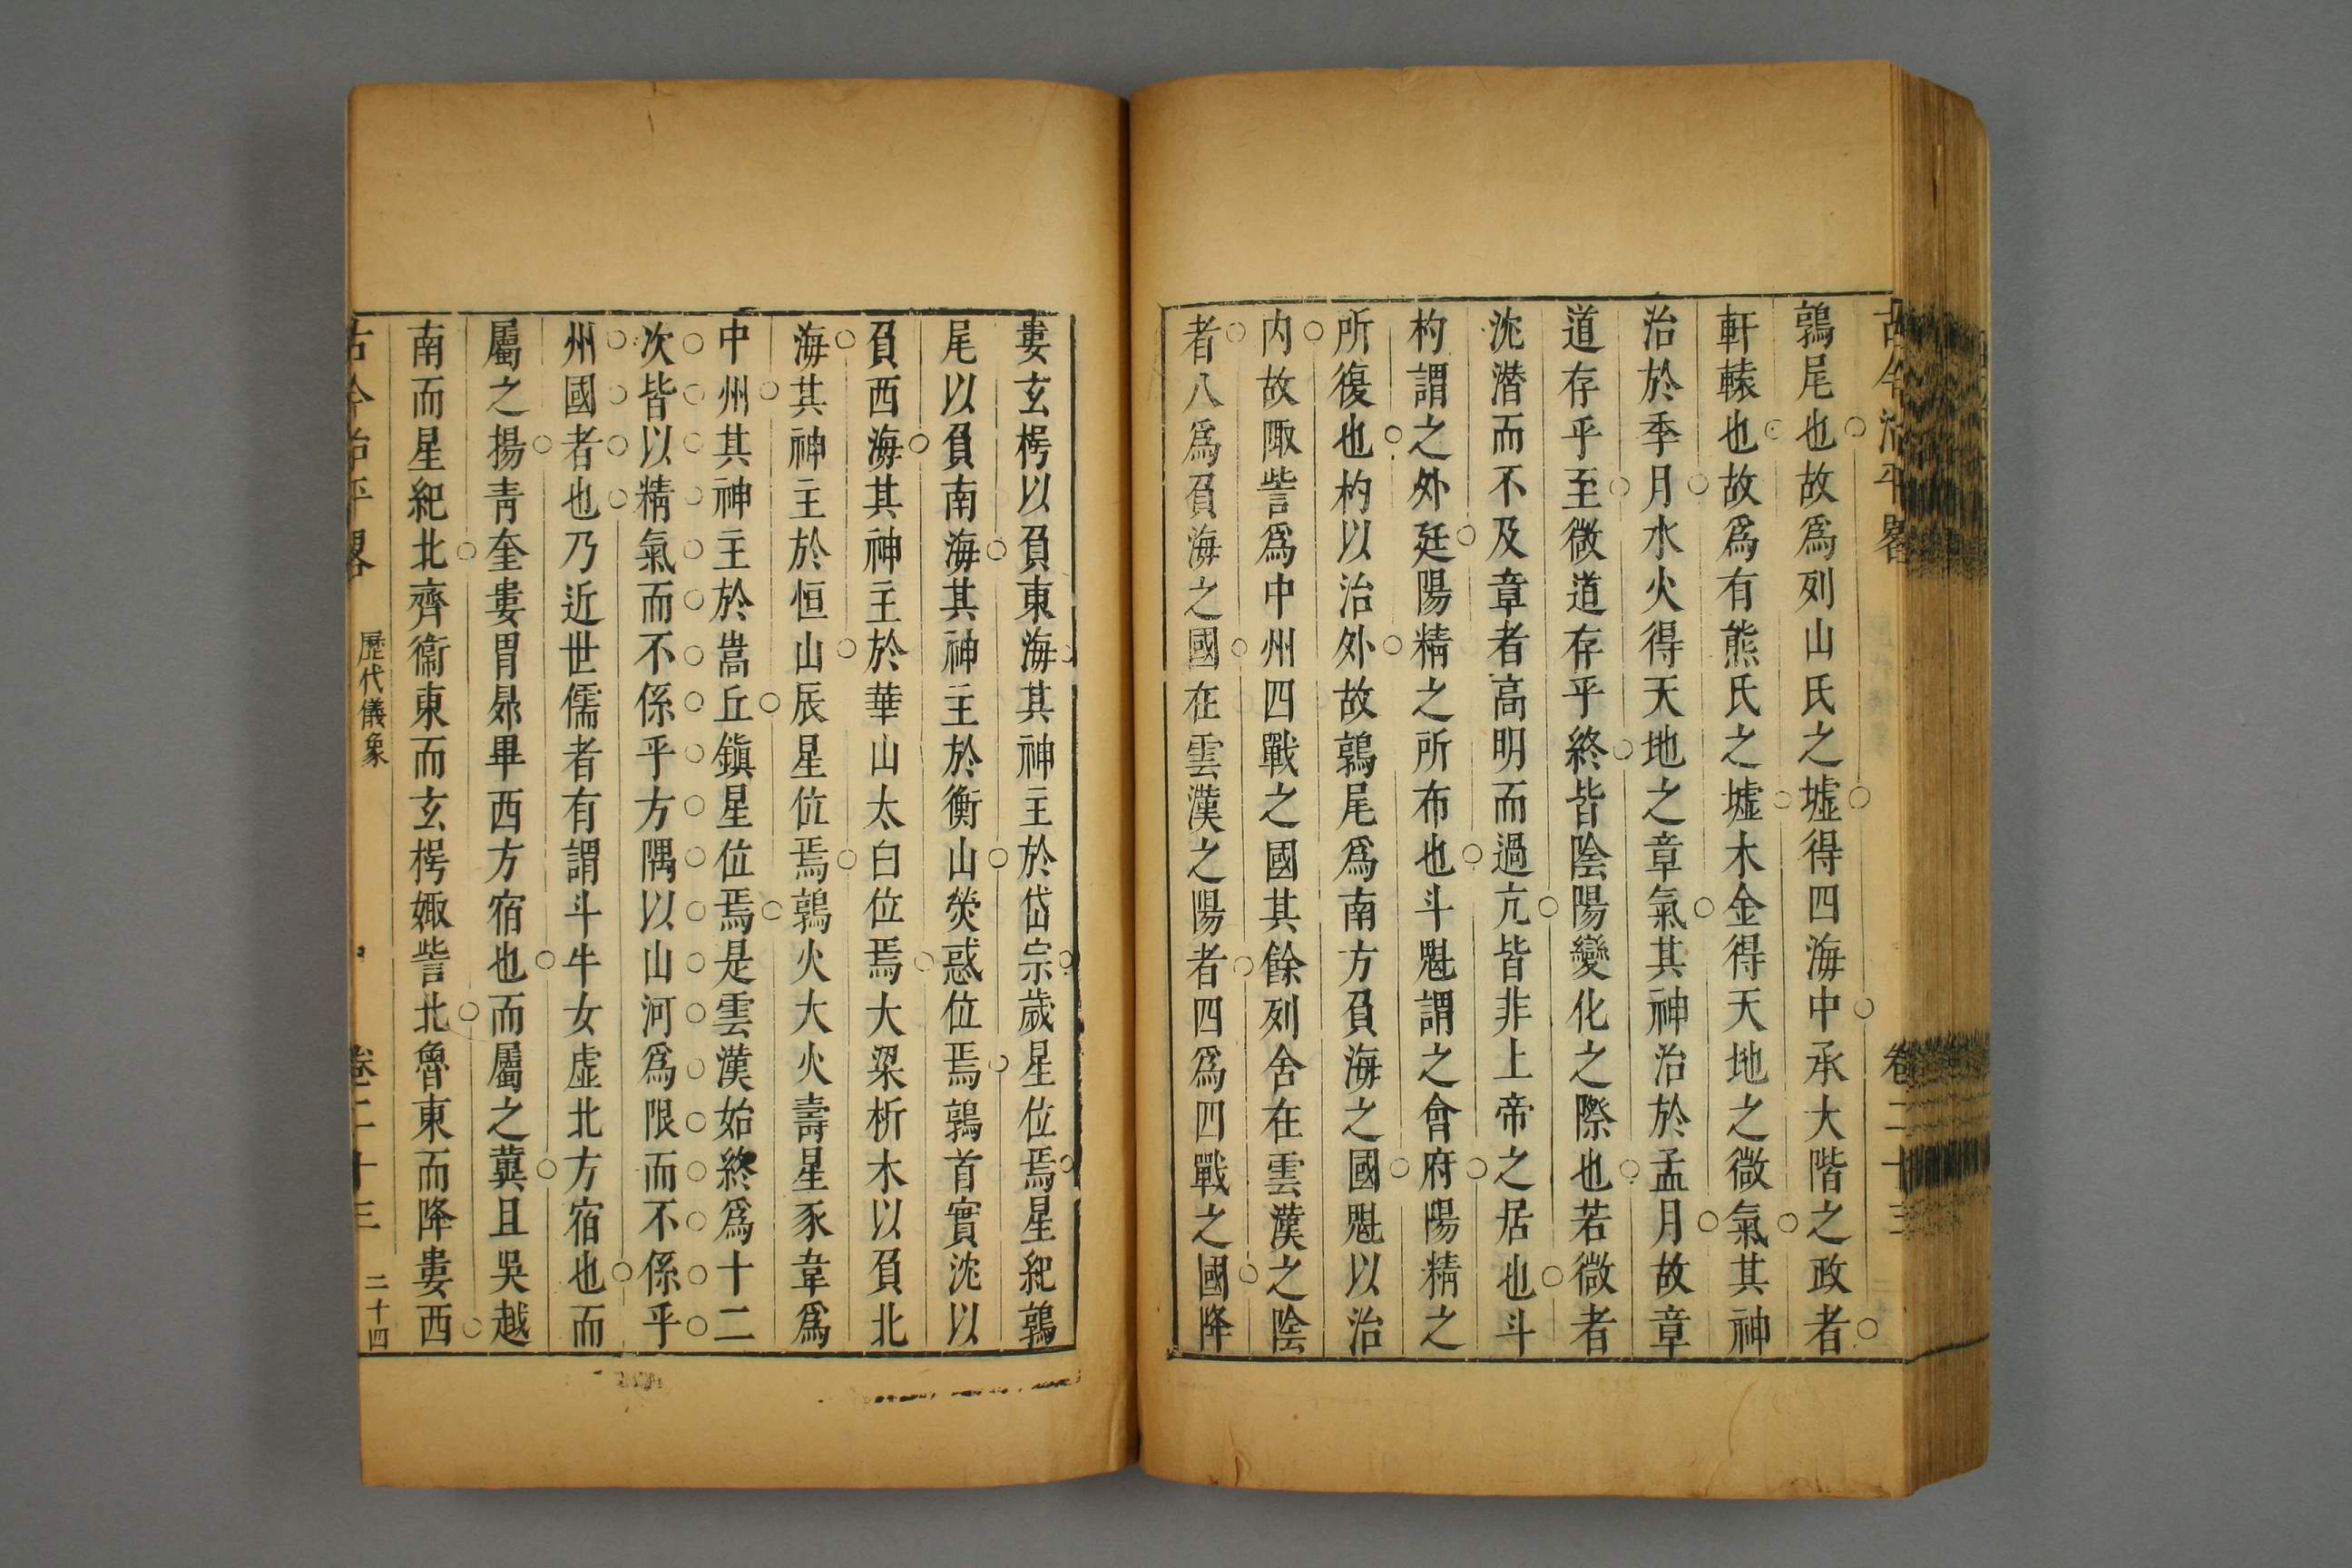 古今治平畧　卷二十三
鶉尾也故爲列山氏之墟得四海中承大階之政者
軒轅也故爲有熊氏之墟木金得天地之微氣其神
治於季月水火得天地之章氣其神治於孟月故章
道存乎至微道存乎終皆陰陽變化之際也若微者
沈潛而不及章者高明而過亢皆非上帝之居也斗
杓謂之外廷陽精之所布也斗魁謂之會府陽精之
所復也杓以治外故鶉尾爲南方負海之國魁以治
内故陬訾爲中州四戰之國其餘列舍在雲漢之陰
者八爲負海之國在雲漢之陽者四爲四戰之國降
婁玄枵以負東海其神主於岱宗歲星位焉星紀鶉
尾以負南海其神主於衡山熒惑位焉鶉首實沈以
負西海其神主於華山太白位焉大梁析木以負北
海其神主於恒山辰星位焉鶉火大火壽星豕韋爲
中州其神主於嵩丘鎭星位焉是雲漢始終爲十二
次皆以精氣而不係乎方隅以山河爲限而不係乎
州國者也乃近世儒者有謂斗牛女虛北方宿也而
屬之揚青奎婁胃昴畢西方宿也而屬之冀且吳越
南而星紀北齊衞東而玄枵娵訾北魯東而降婁西
古今治平畧　歷代儀象　卷二十三　二十四